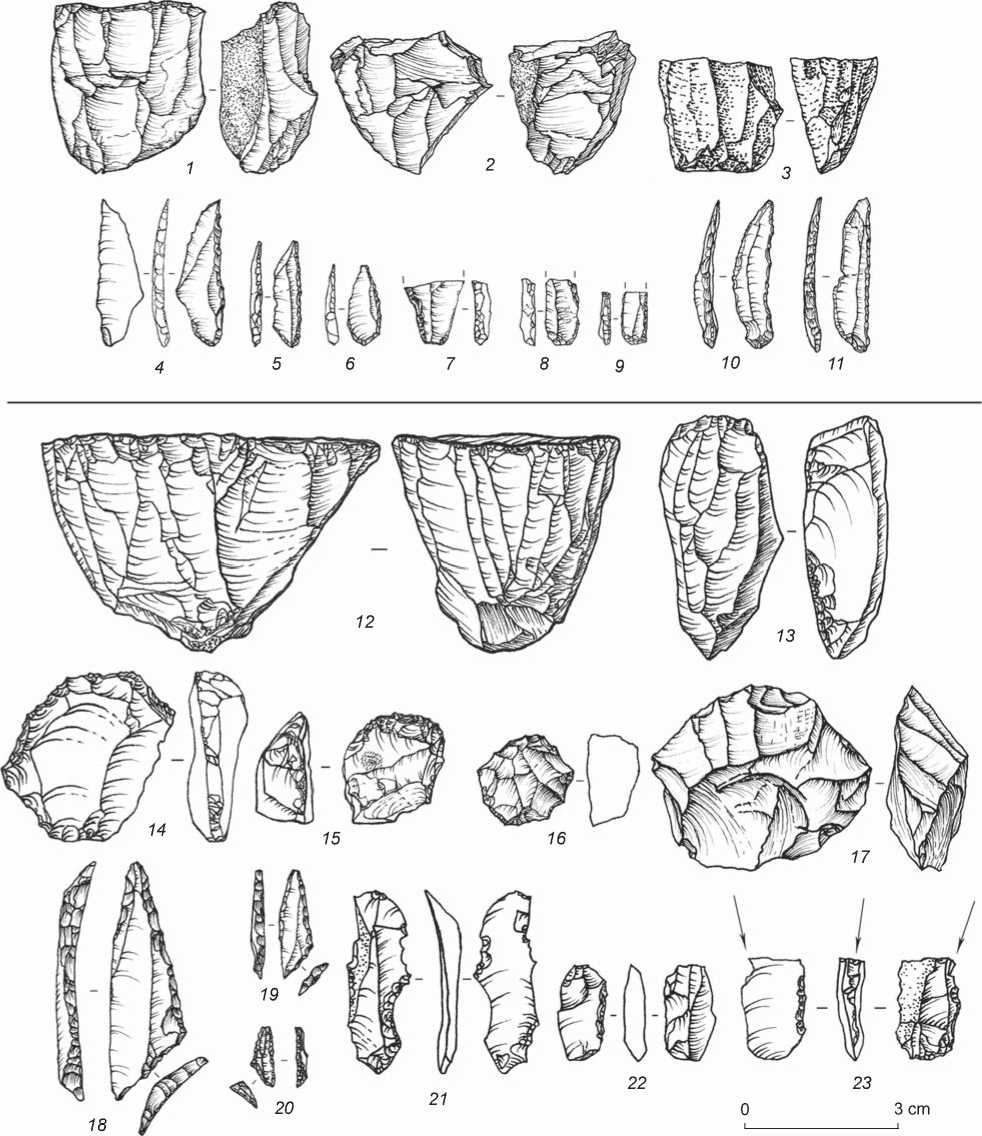 1 2 3
4 5 6 7 8 9 10 11
12 13
14 15 16 17
18 19 20 21 22 23
0 3 cm